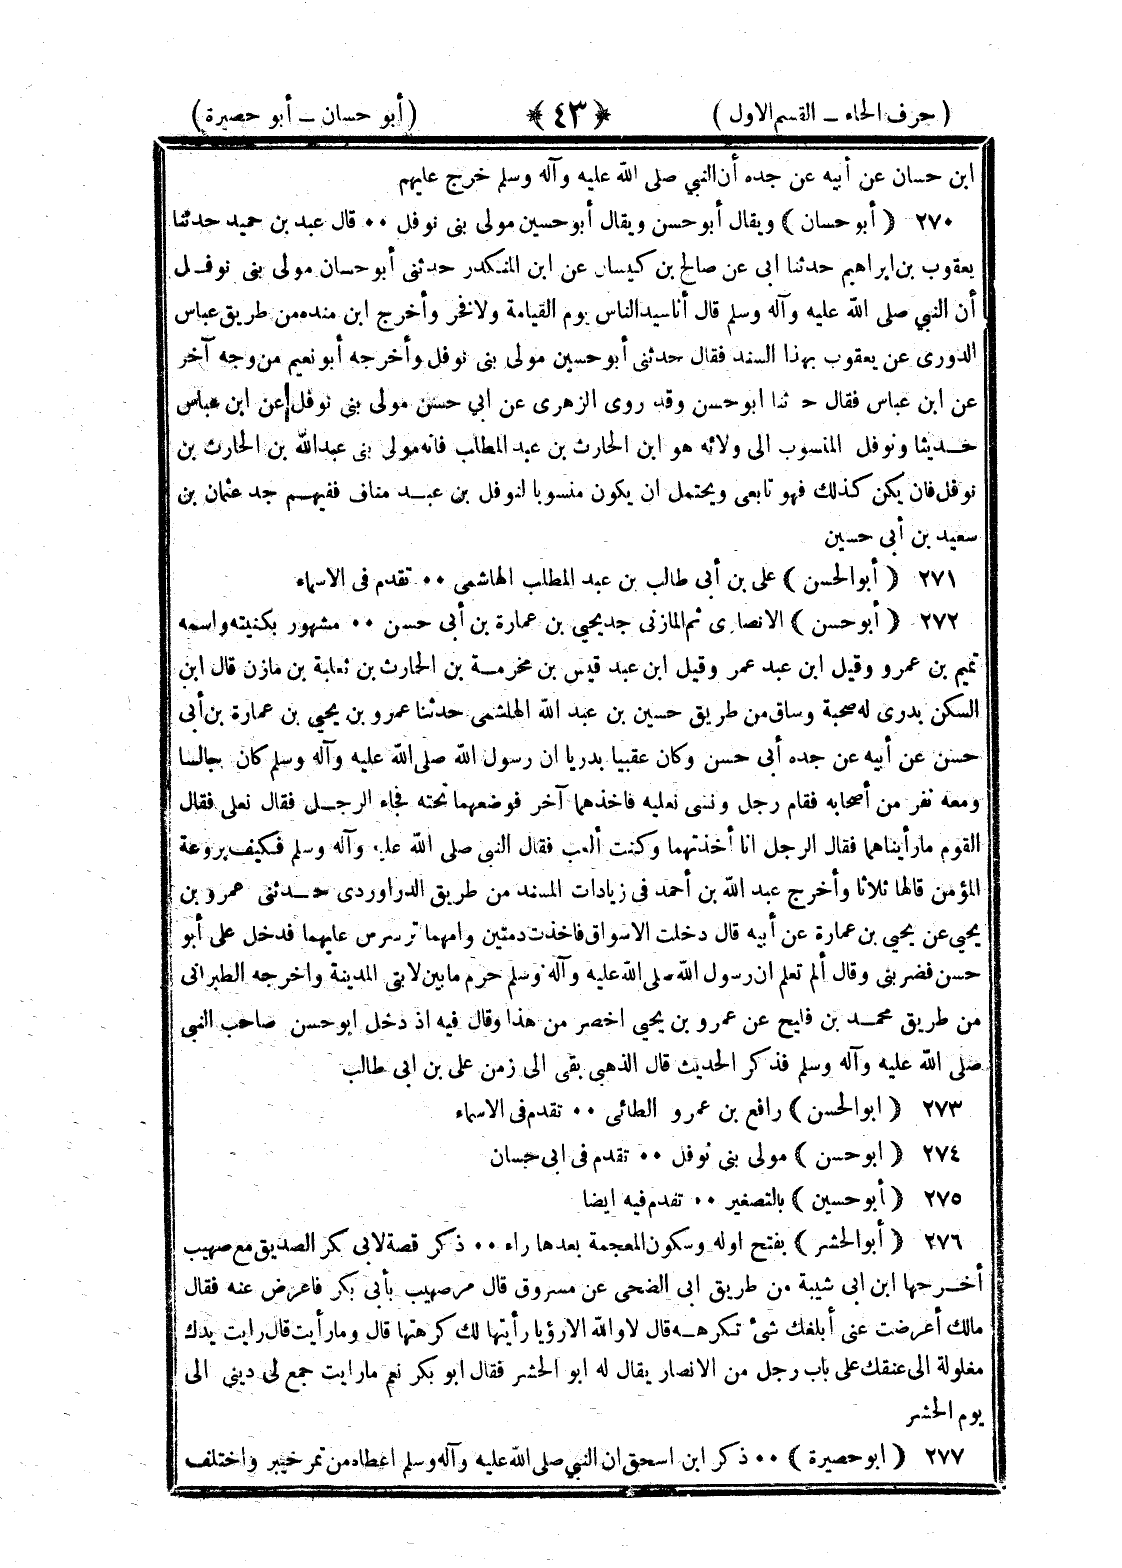 ( حرف الحاء – القسم الاول ) ﴿ ٤٣ ﴾ ( أبو حسان – أبو حصيرة )
ابن حسان عن أبيه عن جده أن النبي صلى الله عليه وآله وسلم خرج عليهم
٢٧٠ ( أبو حسان ) ويقال أبو حسن ويقال أبو حسين مولى بنى نوفل ٠٠ قال عبد بن حميد حدثنا
يعقوب بن ابراهيم حدثنا ابى عن صالح بن كيسان عن ابن المنكدر حدثنى أبو حسان مولى بنى نوفل
أن النبي صلى الله عليه وآله وسلم قال أنا سيد الناس يوم القيامة ولا فخر وأخرج ابن منده من طريق عباس
الدورى عن يعقوب بهذا السند فقال حدثنى أبو حسين مولى بنى نوفل وأخرجه أبو نعيم من وجه آخر
عن ابن عباس فقال ح ثنا ابو حسن وقد روى الزهرى عن ابي حسن مولى بنى نوفل عن ابن عباس
حديثا ونوفل المنسوب الى ولائه هو ابن الحارث بن عبد المطلب فانه مولى بنى عبد الله بن الحارث بن
نوفل فان يكن كذلك فهو تابعى ويحتمل ان يكون منسوبا لنوفل بن عبد مناف ففيهم جد عثمان بن
سعيد بن أبى حسين
٢٧١ ( أبو الحسن ) على بن أبى طالب بن عبد المطلب الهاشمى ٠٠ تقدم فى الاسماء
٢٧٢ ( أبو حسن ) الانصارى ثم المازنى جد يحيي بن عمارة بن أبى حسن ٠٠ مشهور بكنيته واسمه
تميم بن عمرو وقيل ابن عبد عمر وقيل ابن عبد قيس بن مخرمة بن الحارث بن ثعلبة بن مازن قال ابن
السكن بدرى له صحبة وساق من طريق حسين بن عبد الله الهاشمى حدثنا عمرو بن يحيي بن عمارة بن أبى
حسن عن أبيه عن جده أبى حسن وكان عقبيا بدريا ان رسول الله صلى الله عليه وآله وسلم كان جالسا
ومعه نفر من أصحابه فقام رجل ونسى نعليه فاخذهما آخر فوضعهما تحته فجاء الرجل فقال نعلى فقال
القوم ما رأيناهما فقال الرجل انا أخذتهما وكنت ألعب فقال النبي صلى الله عليه وآله وسلم فكيف بروعة
المؤمن قالها ثلاثا وأخرج عبد الله بن أحمد فى زيادات المسند من طريق الدراوردى حدثنى عمرو بن
يحيي عن يحيي بن عمارة عن أبيه قال دخلت الاسواق فاخذت دمتين وامهما ترسرس عليهما فدخل على أبو
حسن فضربنى وقال ألم تعلم ان رسول الله صلى الله عليه وآله وسلم حرم ما بين لابتى المدينة واخرجه الطبرانى
من طريق محمد بن فليح عن عمرو بن يحيي اخصر من هذا وقال فيه اذ دخل ابو حسن صاحب النبي
صلى الله عليه وآله وسلم فذكر الحديث قال الذهبى بقى الى زمن على بن ابى طالب
٢٧٣ ( ابو الحسن ) رافع بن عمرو الطائى ٠٠ تقدم فى الاسماء
٢٧٤ ( ابو حسن ) مولى بنى نوفل ٠٠ تقدم فى ابى حسان
٢٧٥ ( أبو حسين ) بالتصغير ٠٠ تقدم فيه ايضا
٢٧٦ ( أبو الحشر ) بفتح اوله وسكون المعجمة بعدها راء ٠٠ ذكر قصة لابى بكر الصديق مع صهيب
أخرجها ابن ابى شيبة من طريق ابى الضحى عن مسروق قال مر صهيب بأبى بكر فاعرض عنه فقال
مالك أعرضت عنى أبلغك شئ تكرهه قال لا والله الا رؤيا رأيتها لك كرهتها قال وما رأيت قال رايت يدك
مغلولة الى عنقك على باب رجل من الانصار يقال له ابو الحشر فقال ابو بكر نعم ما رايت جمع لى ديني الى
يوم الحشر
٢٧٧ ( ابو حصيرة ) ٠٠ ذكر ابن اسحق ان النبي صلى الله عليه وآله وسلم اعطاه من تمر خيبر واختلف